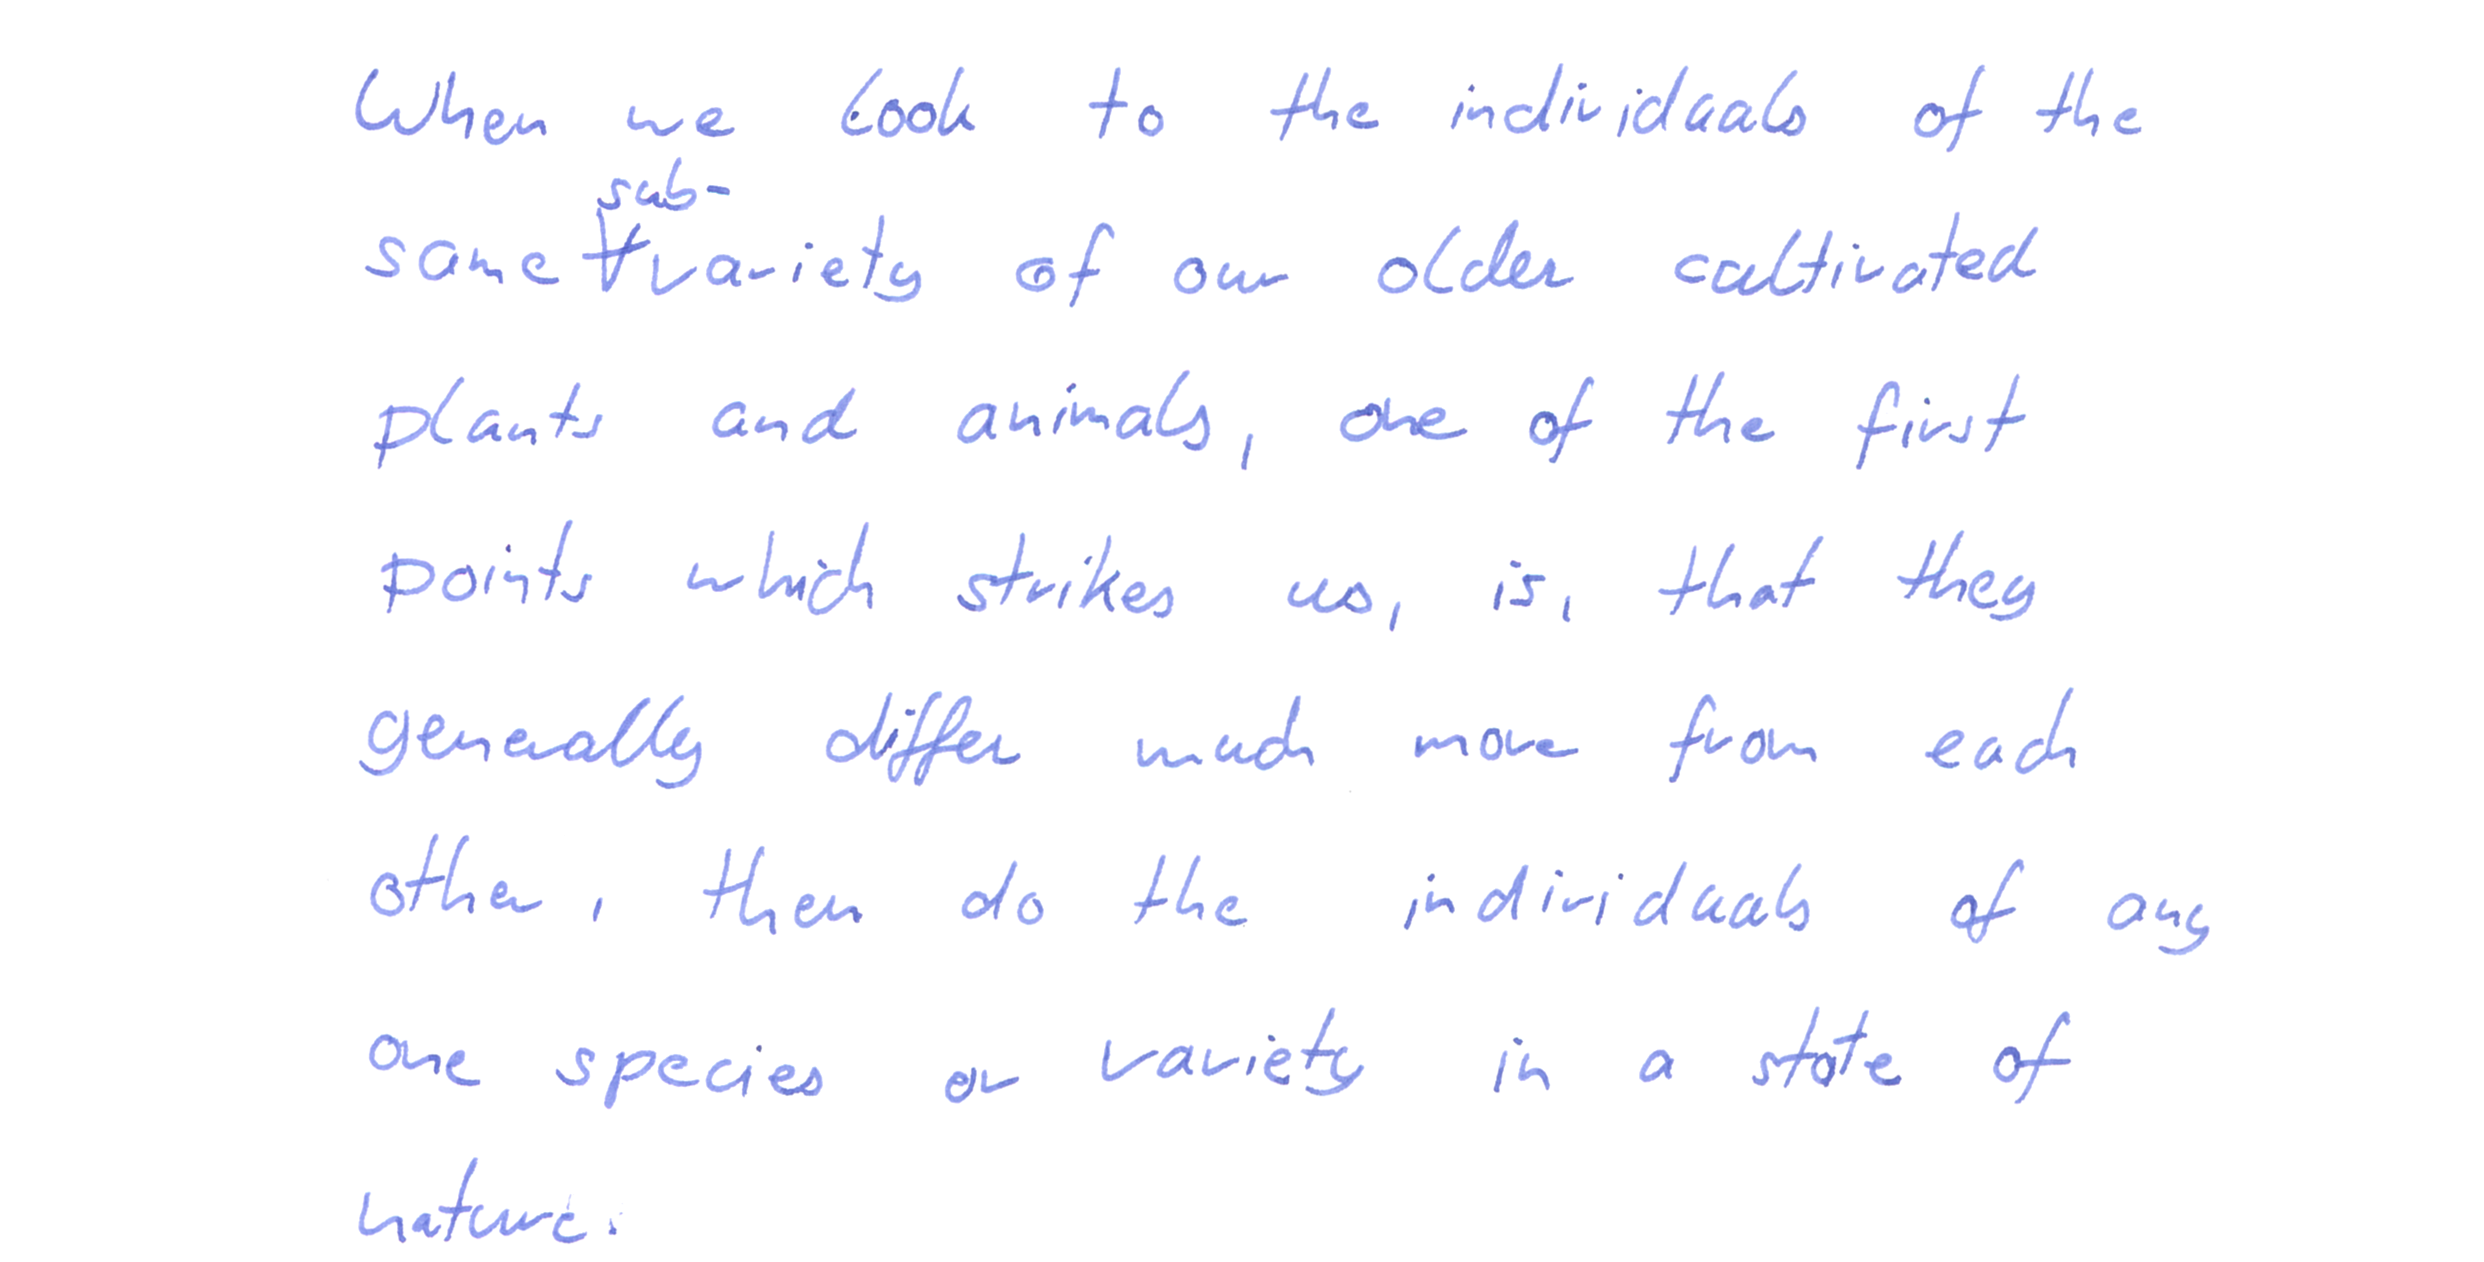 When we look to the individuals of the
same sub-variety of our older cultivated
plants and animals, one of the first
points which strikes us, is, that they
generally differ much more from each
other, then do the individuals of any
one species or variety in a state of
nature.